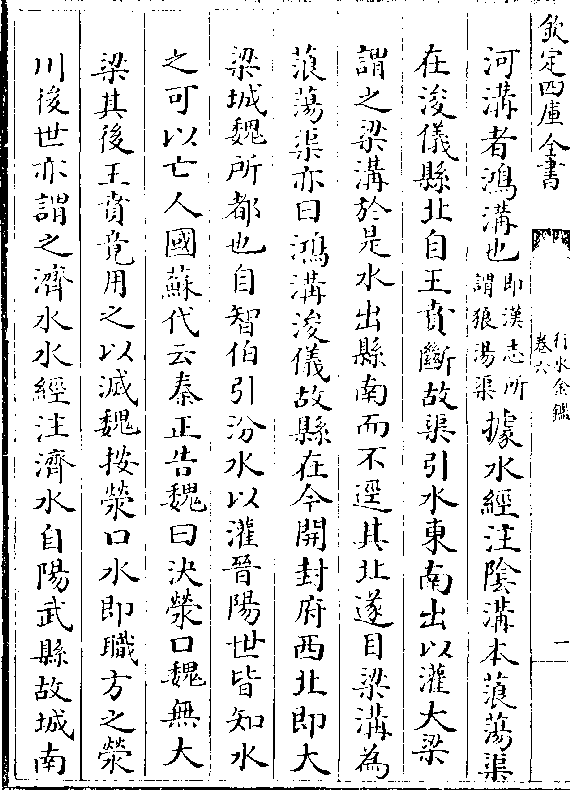 欽定四庫全書
行水金鑑
卷六
一
河溝者鴻溝也即漢志所謂狼湯渠據水經注陰溝本蒗蕩渠
在浚儀縣北自王賁斷故渠引水東南出以灌大梁
謂之梁溝於是水出縣南而不逕其北遂目梁溝為
蒗蕩渠亦曰鴻溝浚儀故縣在今開封府西北即大
梁城魏所都也自智伯引汾水以灌晉陽世皆知水
之可以亡人國蘇代云秦正告魏曰決滎口魏無大
梁其後王賁竟用之以滅魏按滎口水即職方之滎
川後世亦謂之濟水水經注濟水自陽武縣故城南